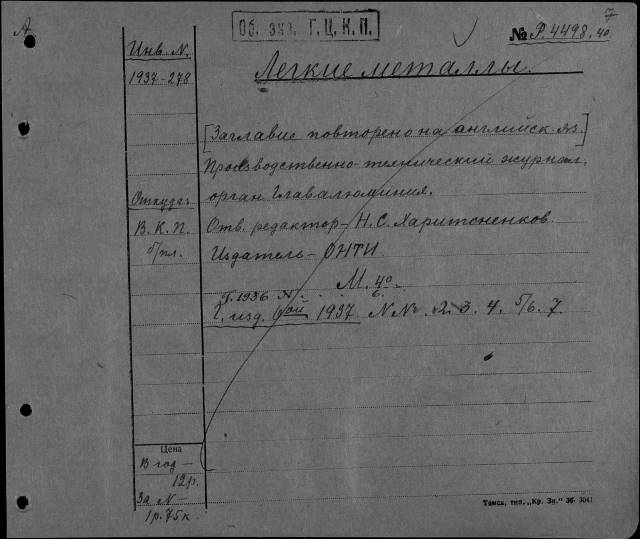 7
Об. экз. Г.Ц.К.П.
№ Р.4498.40
Инв. N.
1937-278
Легкие металлы.
[Заглавие повторено на английск. яз.]
Производственно-технический журнал,
орган Главалюминия.
Откуда:
В.К.П.
б/пл.
Отв. редактор - Н.С. Харитоненков
Издатель - ОНТИ.
М. 4о
Г. изд. 6ой 1937 NNо 2. 3. 4. 5/6. 7
Цена
В год -
12р.
За N -
1р. 75к.
Томск, тип. „Кр. Зн." 36 3041